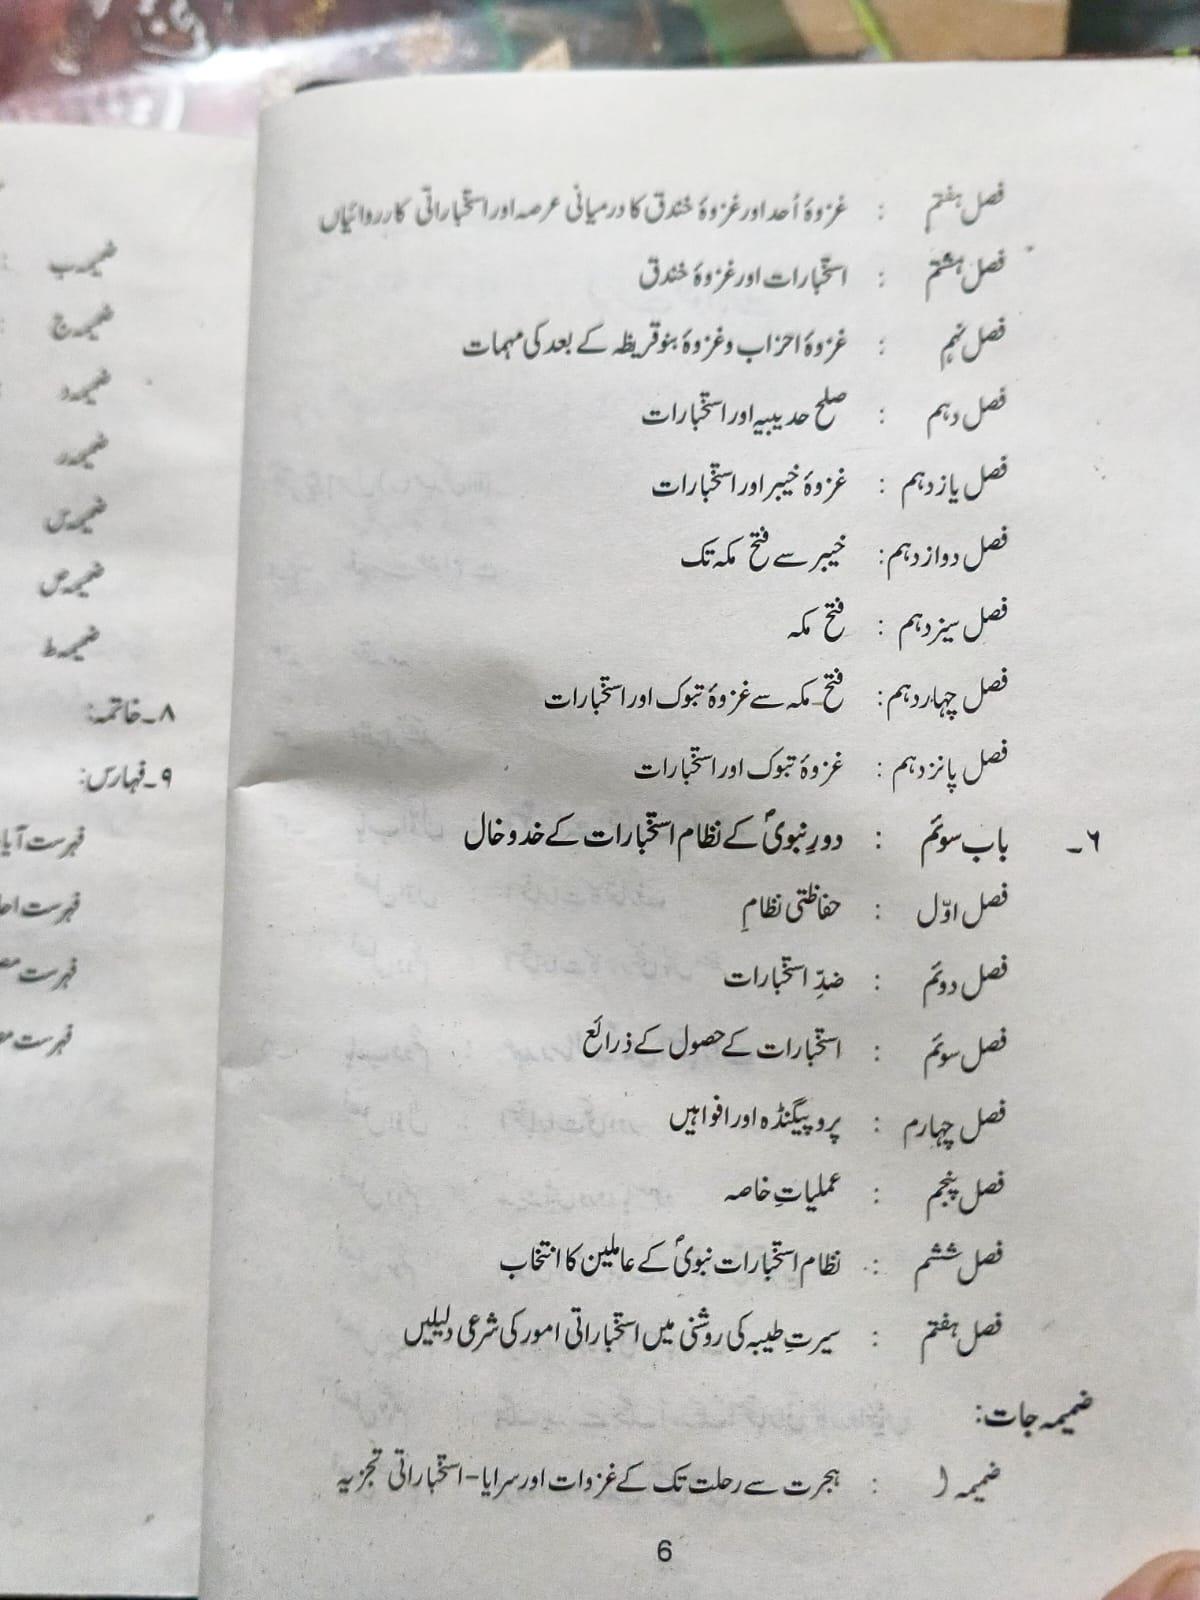 فصل ہفتم : غزوۂ اُحد اور غزوۂ خندق کا درمیانی عرصہ اور استخباراتی کارروائیاں
فصل ہشتم : استخبارات اور غزوۂ خندق
فصل نہم : غزوۂ احزاب و غزوۂ بنو قریظہ کے بعد کی مہمات
فصل دہم : صلح حدیبیہ اور استخبارات
فصل یازدہم : غزوۂ خیبر اور استخبارات
فصل دوازدہم : خیبر سے فتح مکہ تک
فصل سیزدہم : فتح مکہ
فصل چہاردہم : فتح مکہ سے غزوۂ تبوک اور استخبارات
فصل پانزدہم : غزوۂ تبوک اور استخبارات
۶۔ باب سوئم : دورِ نبویؐ کے نظام استخبارات کے خدوخال
فصل اوّل : حفاظتی نظامِ
فصل دوئم : ضدِّ استخبارات
فصل سوئم : استخبارات کے حصول کے ذرائع
فصل چہارم : پروپیگنڈہ اور افواہیں
فصل پنجم : عملیاتِ خاصہ
فصل ششم : نظام استخبارات نبویؐ کے عاملین کا انتخاب
فصل ہفتم : سیرتِ طیبہ کی روشنی میں استخباراتی امور کی شرعی دلیلیں
ضمیمہ جات:
ضمیمہ ا : ہجرت سے رحلت تک کے غزوات اور سرایا - استخباراتی تجزیہ
6
ضمیمہ ب :
ضمیمہ ج :
ضمیمہ د
ضمیمہ ر
ضمیمہ س
ضمیمہ ص
ضمیمہ ط
۸۔ خاتمہ:
۹۔ فہارس:
فہرست
فہرست
فہرست
فہرست